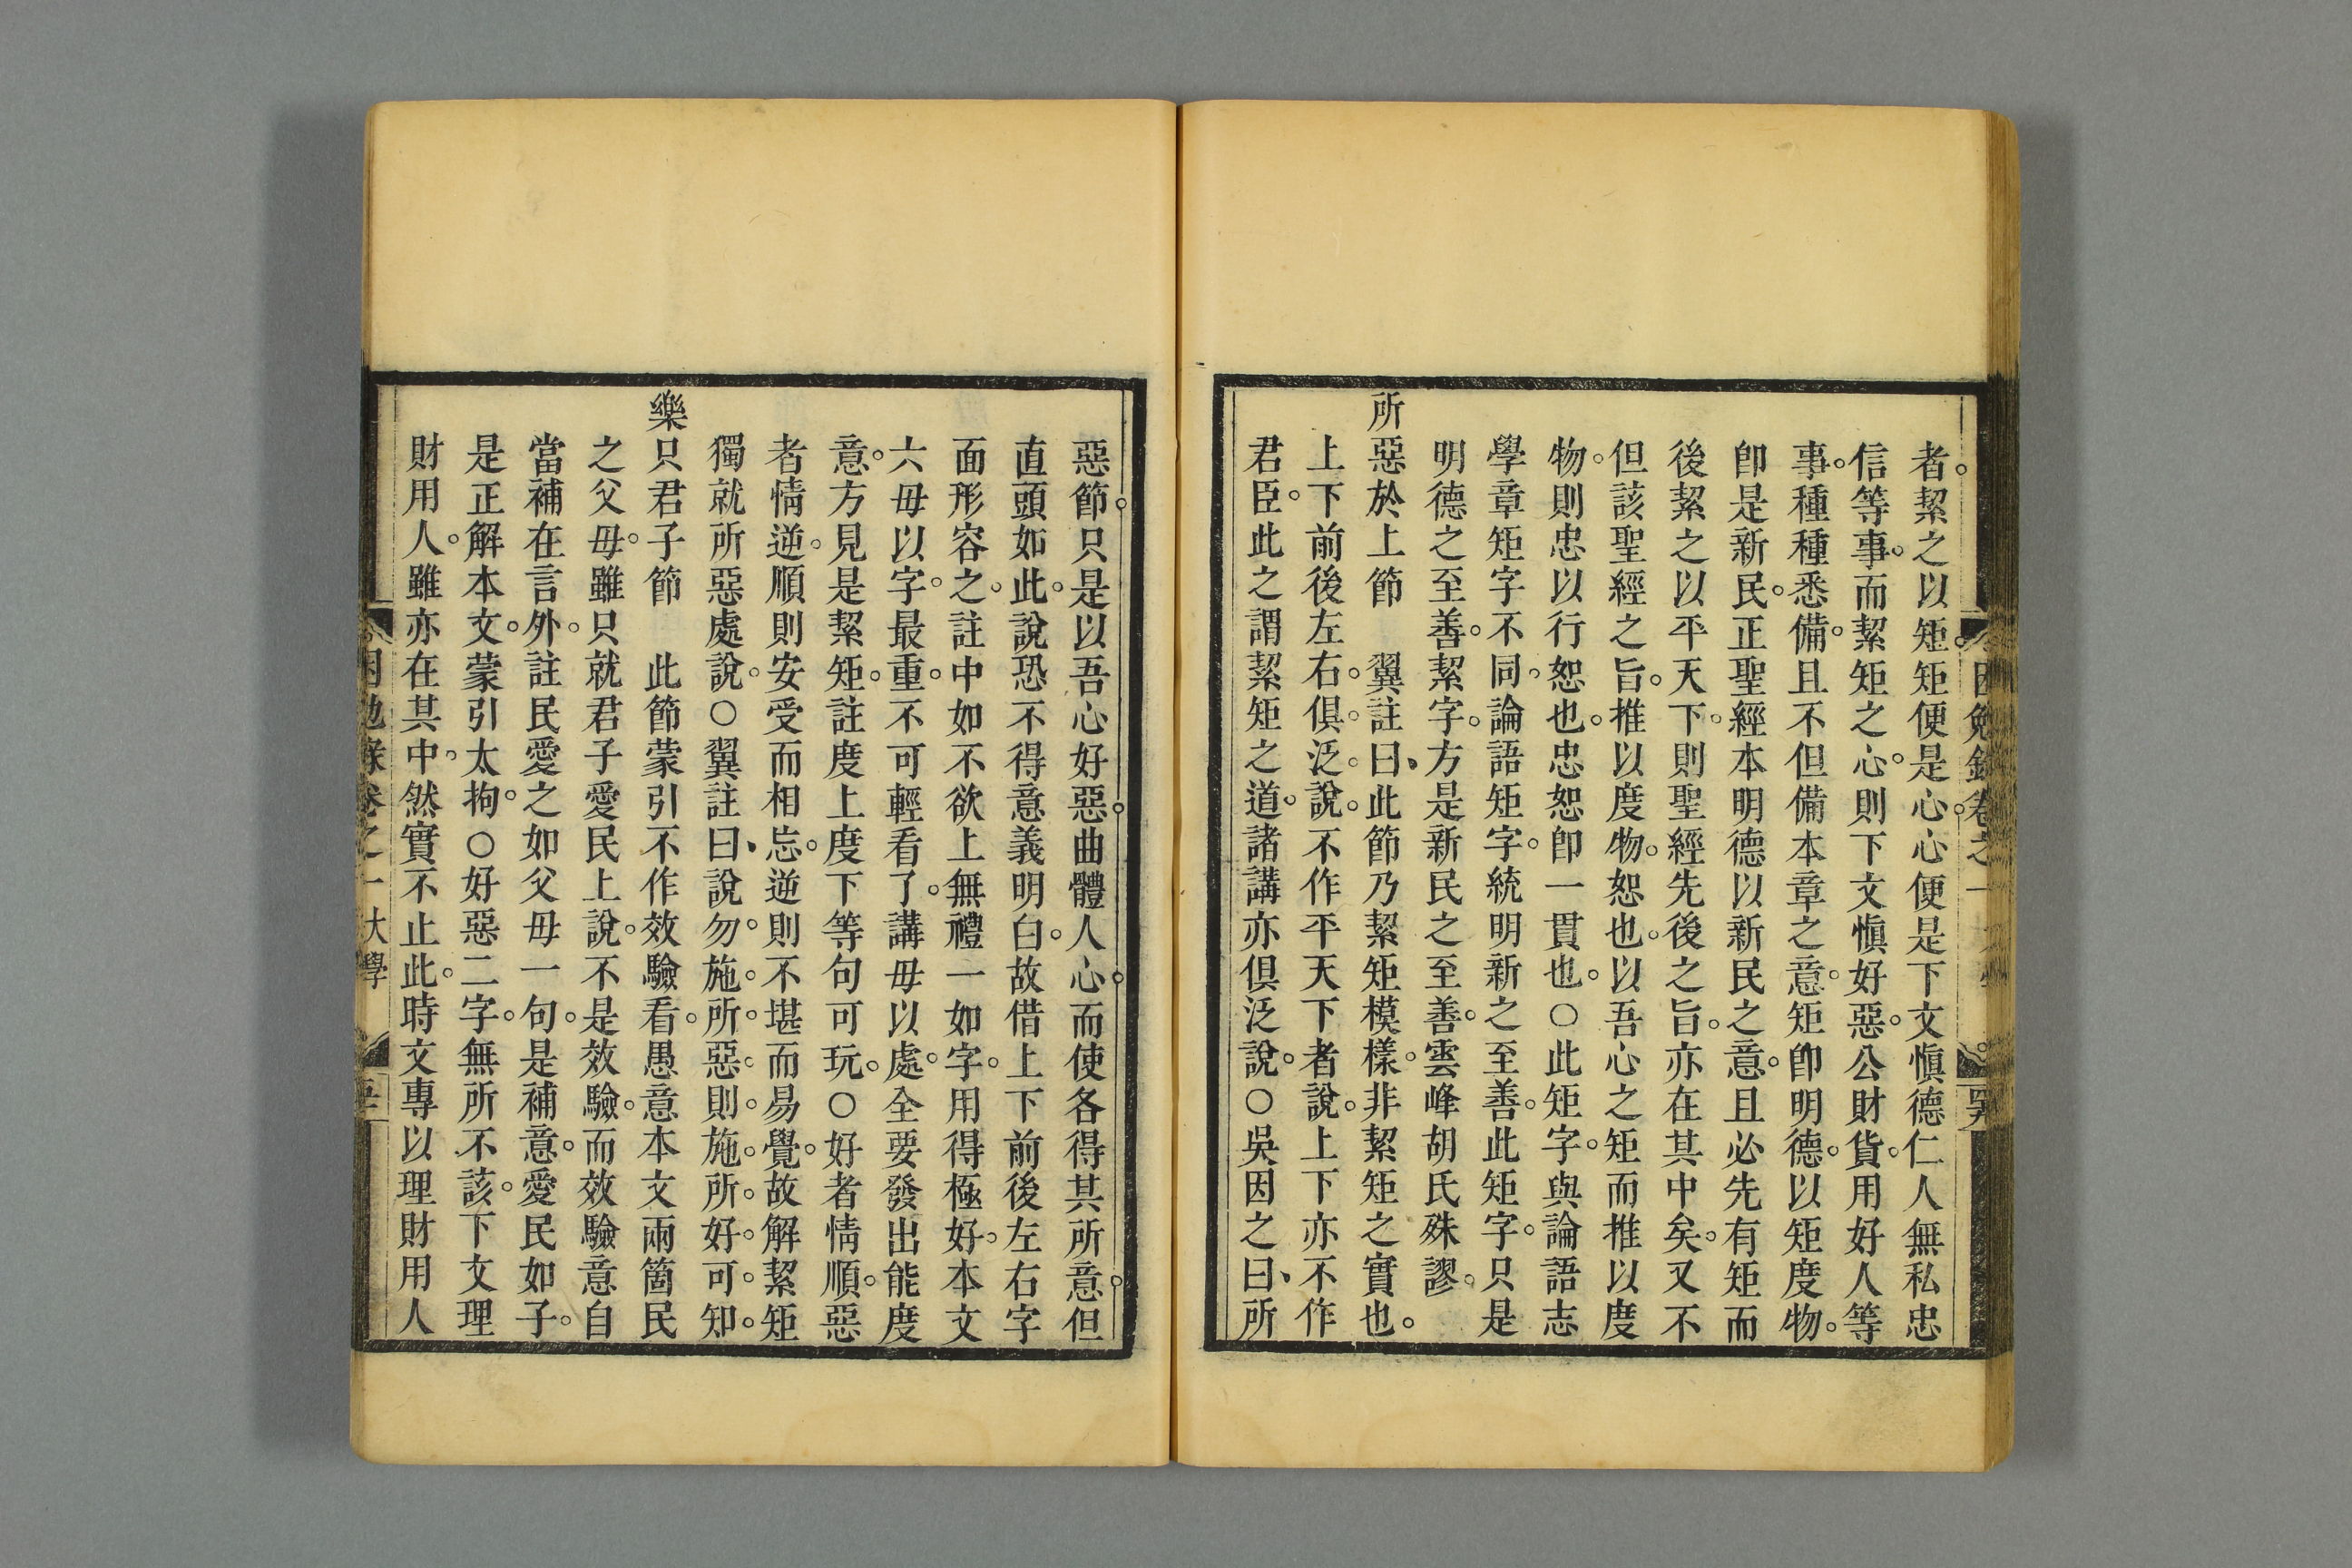 者。絜之以矩。矩便是心。心便是下文愼德仁人無私忠
信等事。而絜矩之心。則下文愼好惡。公財貨。用好人等
事。種種悉備。且不但備本章之意。矩卽明德。以矩度物。
卽是新民。正聖經本明德以新民之意。且必先有矩而
後絜之以平天下。則聖經先後之旨。亦在其中矣。又不
但該聖經之旨。推以度物。恕也。以吾心之矩而推以度
物。則忠以行恕也。忠恕卽一貫也。○此矩字。與論語志
學章矩字不同。論語矩字。統明新之至善。此矩字。只是
明德之至善。絜字。方是新民之至善。雲峰胡氏殊謬。
所惡於上節　翼註曰、此節乃絜矩模樣。非絜矩之實也。
上下前後左右。俱。泛。說。不作平天下者說。上下亦不作
君臣。此之謂絜矩之道。諸講亦俱泛說。○吳因之曰、所
惡節。只是以吾心好惡。曲體人心。而使各得其所意。但
直頭如此。說恐不得意義明白。故借上下前後左右字
面形容之。註中如不欲上無禮一如字。用得極好。本文
六毋以字。最重。不可輕看了。講毋以處。全要發出能度
意。方見是絜矩。註度上度下等句可玩。○好者情順。惡
者情逆。順則安受而相忘。逆則不堪而易覺。故解絜矩
獨就所惡處說。○翼註曰、說勿。施。所。惡。則。施。所。好。可。知。
樂只君子節　此節蒙引不作效驗看。愚意本文兩箇民
之父毋。雖只就君子愛民上說。不是效驗。而效驗意自
當補在言外。註民愛之如父毋一句。是補意。愛民如子。
是正解本文。蒙引太拘。○好惡二字。無所不該。下文理
財用人。雖亦在其中。然實不止此。時文專以理財用人